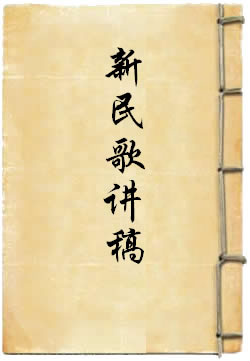 新民歌讲稿